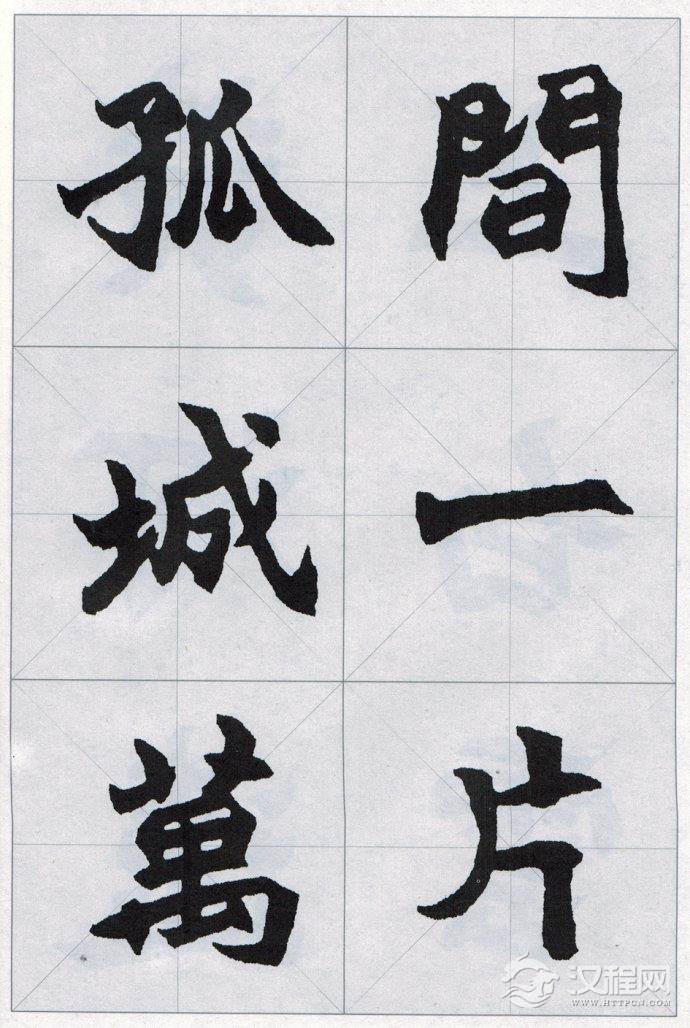 間一片
孤城萬
汉程网
WWW.HTTPCN.COM